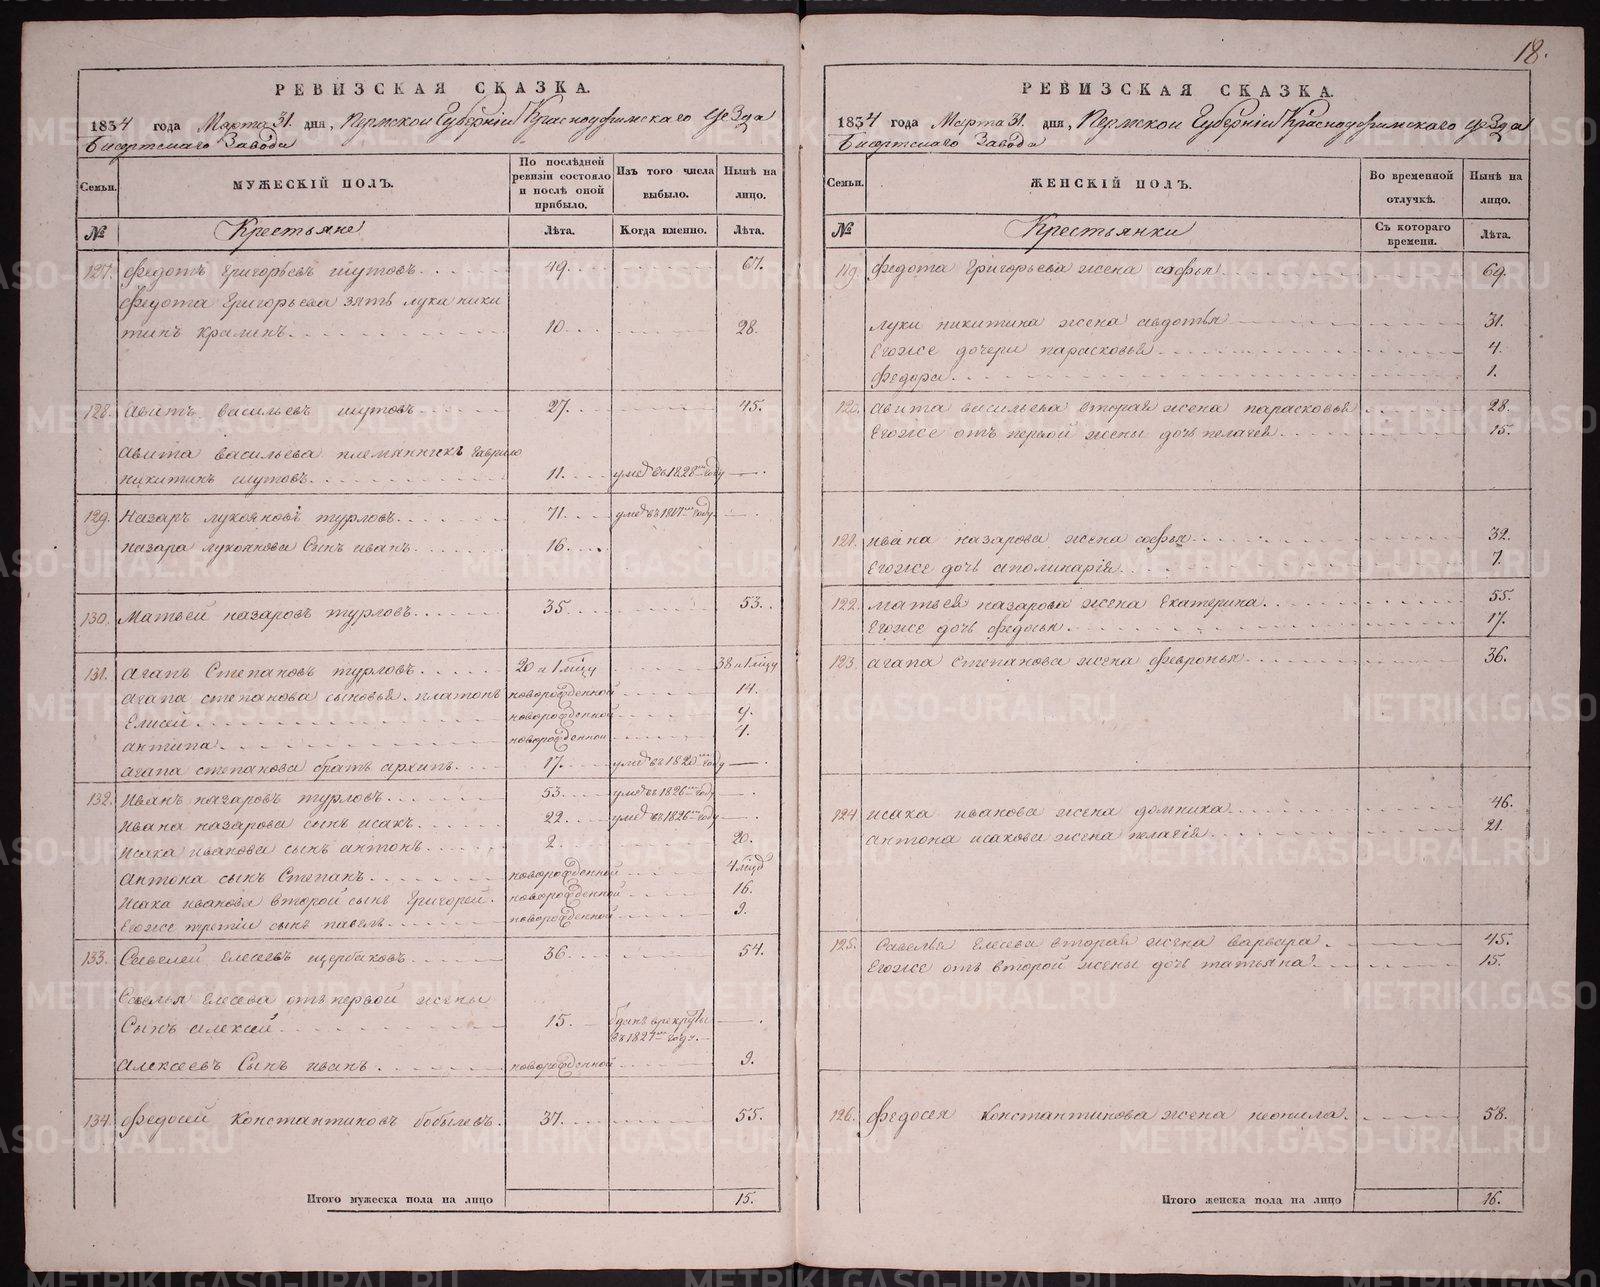 18.
РЕВИЗСКАЯ СКАЗКА.
1834 года Марта 31. дня, Пермской Губернiи Красноуфимскаго уезда
Бисертскаго Завода
Семьи.
МУЖЕСКІЙ ПОЛЪ.
По послѣдней ревизіи состояло и послѣ оной прибыло.
Изъ того числа выбыло.
Нынѣ на лицо.
№
Крестьяне
Лѣта.
Когда именно.
Лѣта.
127. Федотъ Григорьевъ шутовъ 49. 67.
Федота Григорьева зять лука ники
тинъ Крапинъ 10. 28.
128. Авитъ васильевъ шутовъ 27. 45.
Авита васильева племянникъ Гаврило
никитинъ шутовъ 11. умеръ въ 1828м году —.
129. Назаръ лукояновъ турловъ 71. умеръ въ 1817м году —.
назара лукоянова Сынъ иванъ 16.
130. Матвей назаровъ турловъ 35. 53.
131. Агапъ Степановъ турловъ 20 и 1 мцу 38 и 1 мцу
агапа степанова сыновья. платонъ новорожденной 14.
Елисей новорожденной 9.
антипа новорожденной 4.
агапа степанова братъ архипъ 17. умеръ въ 1820м году —.
132. Иванъ назаровъ турловъ 53. умеръ въ 1826м году —.
Ивана назарова сынъ исакъ 22. умеръ въ 1826м году —.
Исака иванова сынъ антонъ 2. 20.
Антона сынъ Степанъ новорожденной 4 мцд
Исака иванова второй сынъ Григорей новорожденной 16.
Егоже третiи сынъ павелъ новорожденной 9.
133. Савелей Елесевъ щербаковъ 36. 54.
Савелья Елесева отъ первой жены
Сынъ алексей 15. Зданъ врекруты въ 1827м году. —.
Алексеевъ Сынъ иванъ новорожденной 9.
134. Федосей Константиновъ бобылевъ. 37. 55.
Итого мужеска пола на лицо 15.
РЕВИЗСКАЯ СКАЗКА.
1834 года Марта 31. дня, Пермской Губернiи Красноуфимскаго уезда
Бисертскаго Завода
Семьи.
ЖЕНСКІЙ ПОЛЪ.
Во временной отлучкѣ.
Нынѣ на лицо.
№
Крестьянки
Съ котораго времени.
Лѣта.
119. Федота Григорьева жена софья 69.
луки никитина жена авдотья 31.
Егоже дочери парасковья 4.
Федора 1.
120. Авита васильева вторая жена парасковья 28.
Егоже отъ первой жены дочь пелагея 15.
121. ивана назарова жена софья 32.
Егоже дочь аполинарiя 7.
122. Матвея назарова жена Екатерина 55.
Егоже дочь федосья 17.
123. Агапа Степанова жена февронья 36.
124 исака иванова жена домника 46.
антона исакова жена пелагiя 21.
125. Савелья Елесева вторая жена варвара 45.
Егоже отъ второй жены дочь татьяна 15.
126. Федосея Константинова жена неонила 58.
Итого женска пола на лицо 16.
METRIKI.GASO-URAL.RU